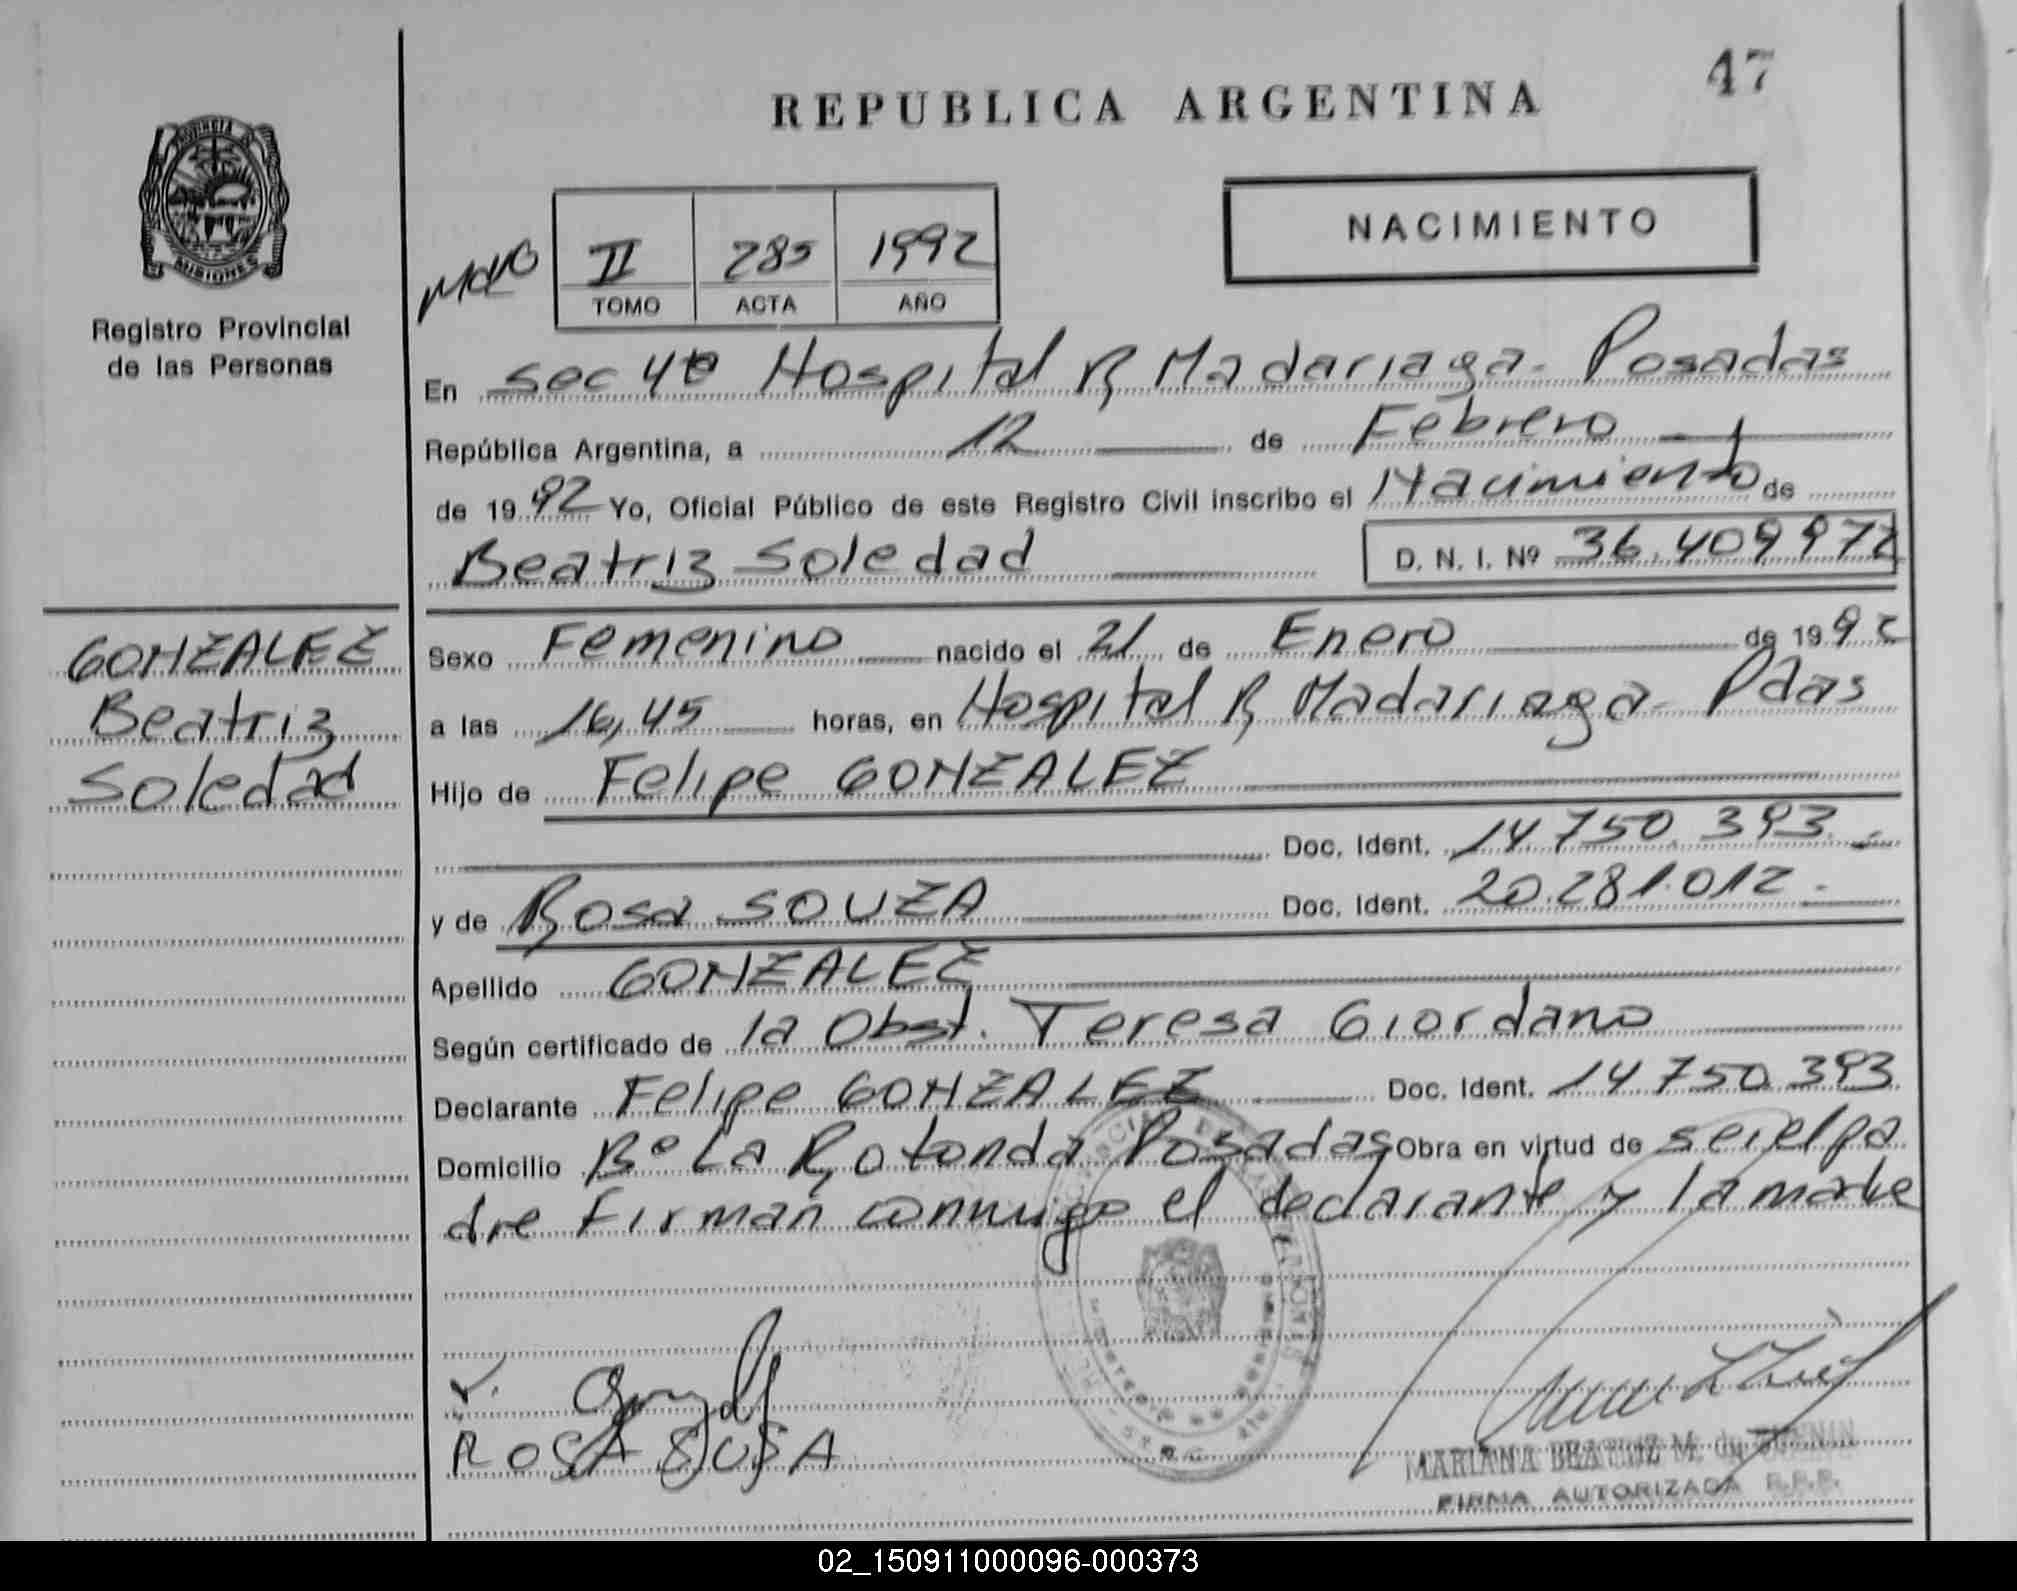 47
REPUBLICA ARGENTINA
PROVINCIA DE
MISIONES
Registro Provincial
de las Personas
NACIMIENTO
II 285 1992
TOMO ACTA AÑO
En Sec 4ta Hospital R Madariaga - Posadas
República Argentina, a 12 de Febrero
de 1992 Yo, Oficial Público de este Registro Civil inscribo el Nacimiento de
Beatriz Soledad D. N. I. Nº 36.409972
GONZALEZ
Beatriz
Soledad
Sexo Femenino nacido el 21 de Enero de 1992
a las 16,45 horas, en Hospital R Madariaga - Pdas
Hijo de Felipe GONZALEZ
Doc. Ident. 14.750.393.-
y de Rosa SOUZA Doc. Ident. 20.281.012.-
Apellido GONZALEZ
Según certificado de la Obst. Teresa Giordano
Declarante Felipe GONZALEZ Doc. Ident. 14.750.393
Domicilio Bº La Rotonda Posadas Obra en virtud de ser el pa
dre Firman conmigo el declarante y la madre
ROSA SUSA
MARIANA BEATRIZ M. de
FIRMA AUTORIZADA R.P.P.
02_150911000096-000373